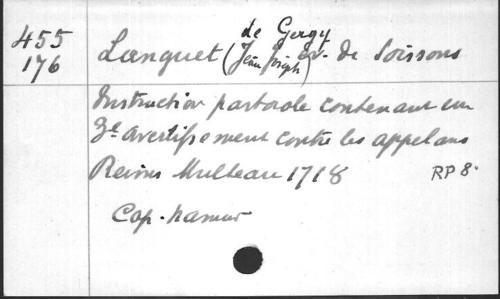 455
176
de Gergy
Languet (Jean Joseph) ev. de Soissons
Instruction pastorale contenant un
3e avertissement contre les appelans
Reims Multeau 1718 RP 8°
Cap. Namur